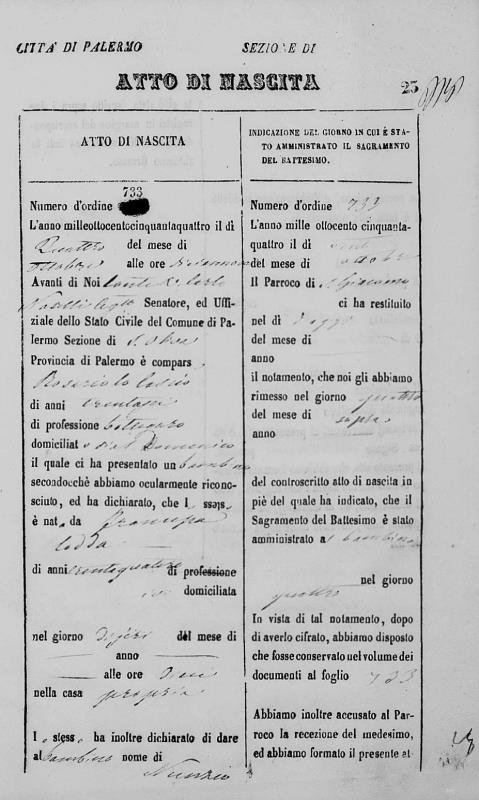 CITTÀ DI PALERMO SEZIONE DI
ATTO DI NASCITA 23
ATTO DI NASCITA
733
Numero d'ordine
L'anno milleottocentocinquantaquattro il dì
Quattro del mese di
Ottobre alle ore diciannove
Avanti di Noi Conte
Senatore, ed Uffi-
ziale dello Stato Civile del Comune di Pa-
lermo Sezione di
Provincia di Palermo è compars
Rosario lo Cascio
di anni
di professione
domiciliat
il quale ci ha presentato un bambino
secondocchè abbiamo ocularmente ricono-
sciuto, ed ha dichiarato, che l stess
è nat da Francesca
di anni trentaquattro di professione
domiciliata
nel giorno del mese di
anno
alle ore
nella casa propria
l stess ha inoltre dichiarato di dare
al bambino nome di
Nunzio
INDICAZIONE DEL GIORNO IN CUI È STA-
TO AMMINISTRATO IL SAGRAMENTO
DEL BATTESIMO.
Numero d'ordine 733
L'anno mille ottocento cinquanta-
quattro il dì venti
del mese di ottobre
Il Parroco di S. Giacomo
ci ha restituito
nel dì
del mese di
anno
il notamento, che noi gli abbiamo
rimesso nel giorno quattro
del mese di sopra
anno
del controscritto atto di nascita in
piè del quale ha indicato, che il
Sagramento del Battesimo è stato
amministrato a bambino
nel giorno
quattro
In vista di tal notamento, dopo
di averlo cifrato, abbiamo disposto
che fosse conservato nel volume dei
documenti al foglio 733
Abbiamo inoltre accusato al Par-
roco la recezione del medesimo,
ed abbiamo formato il presente at-